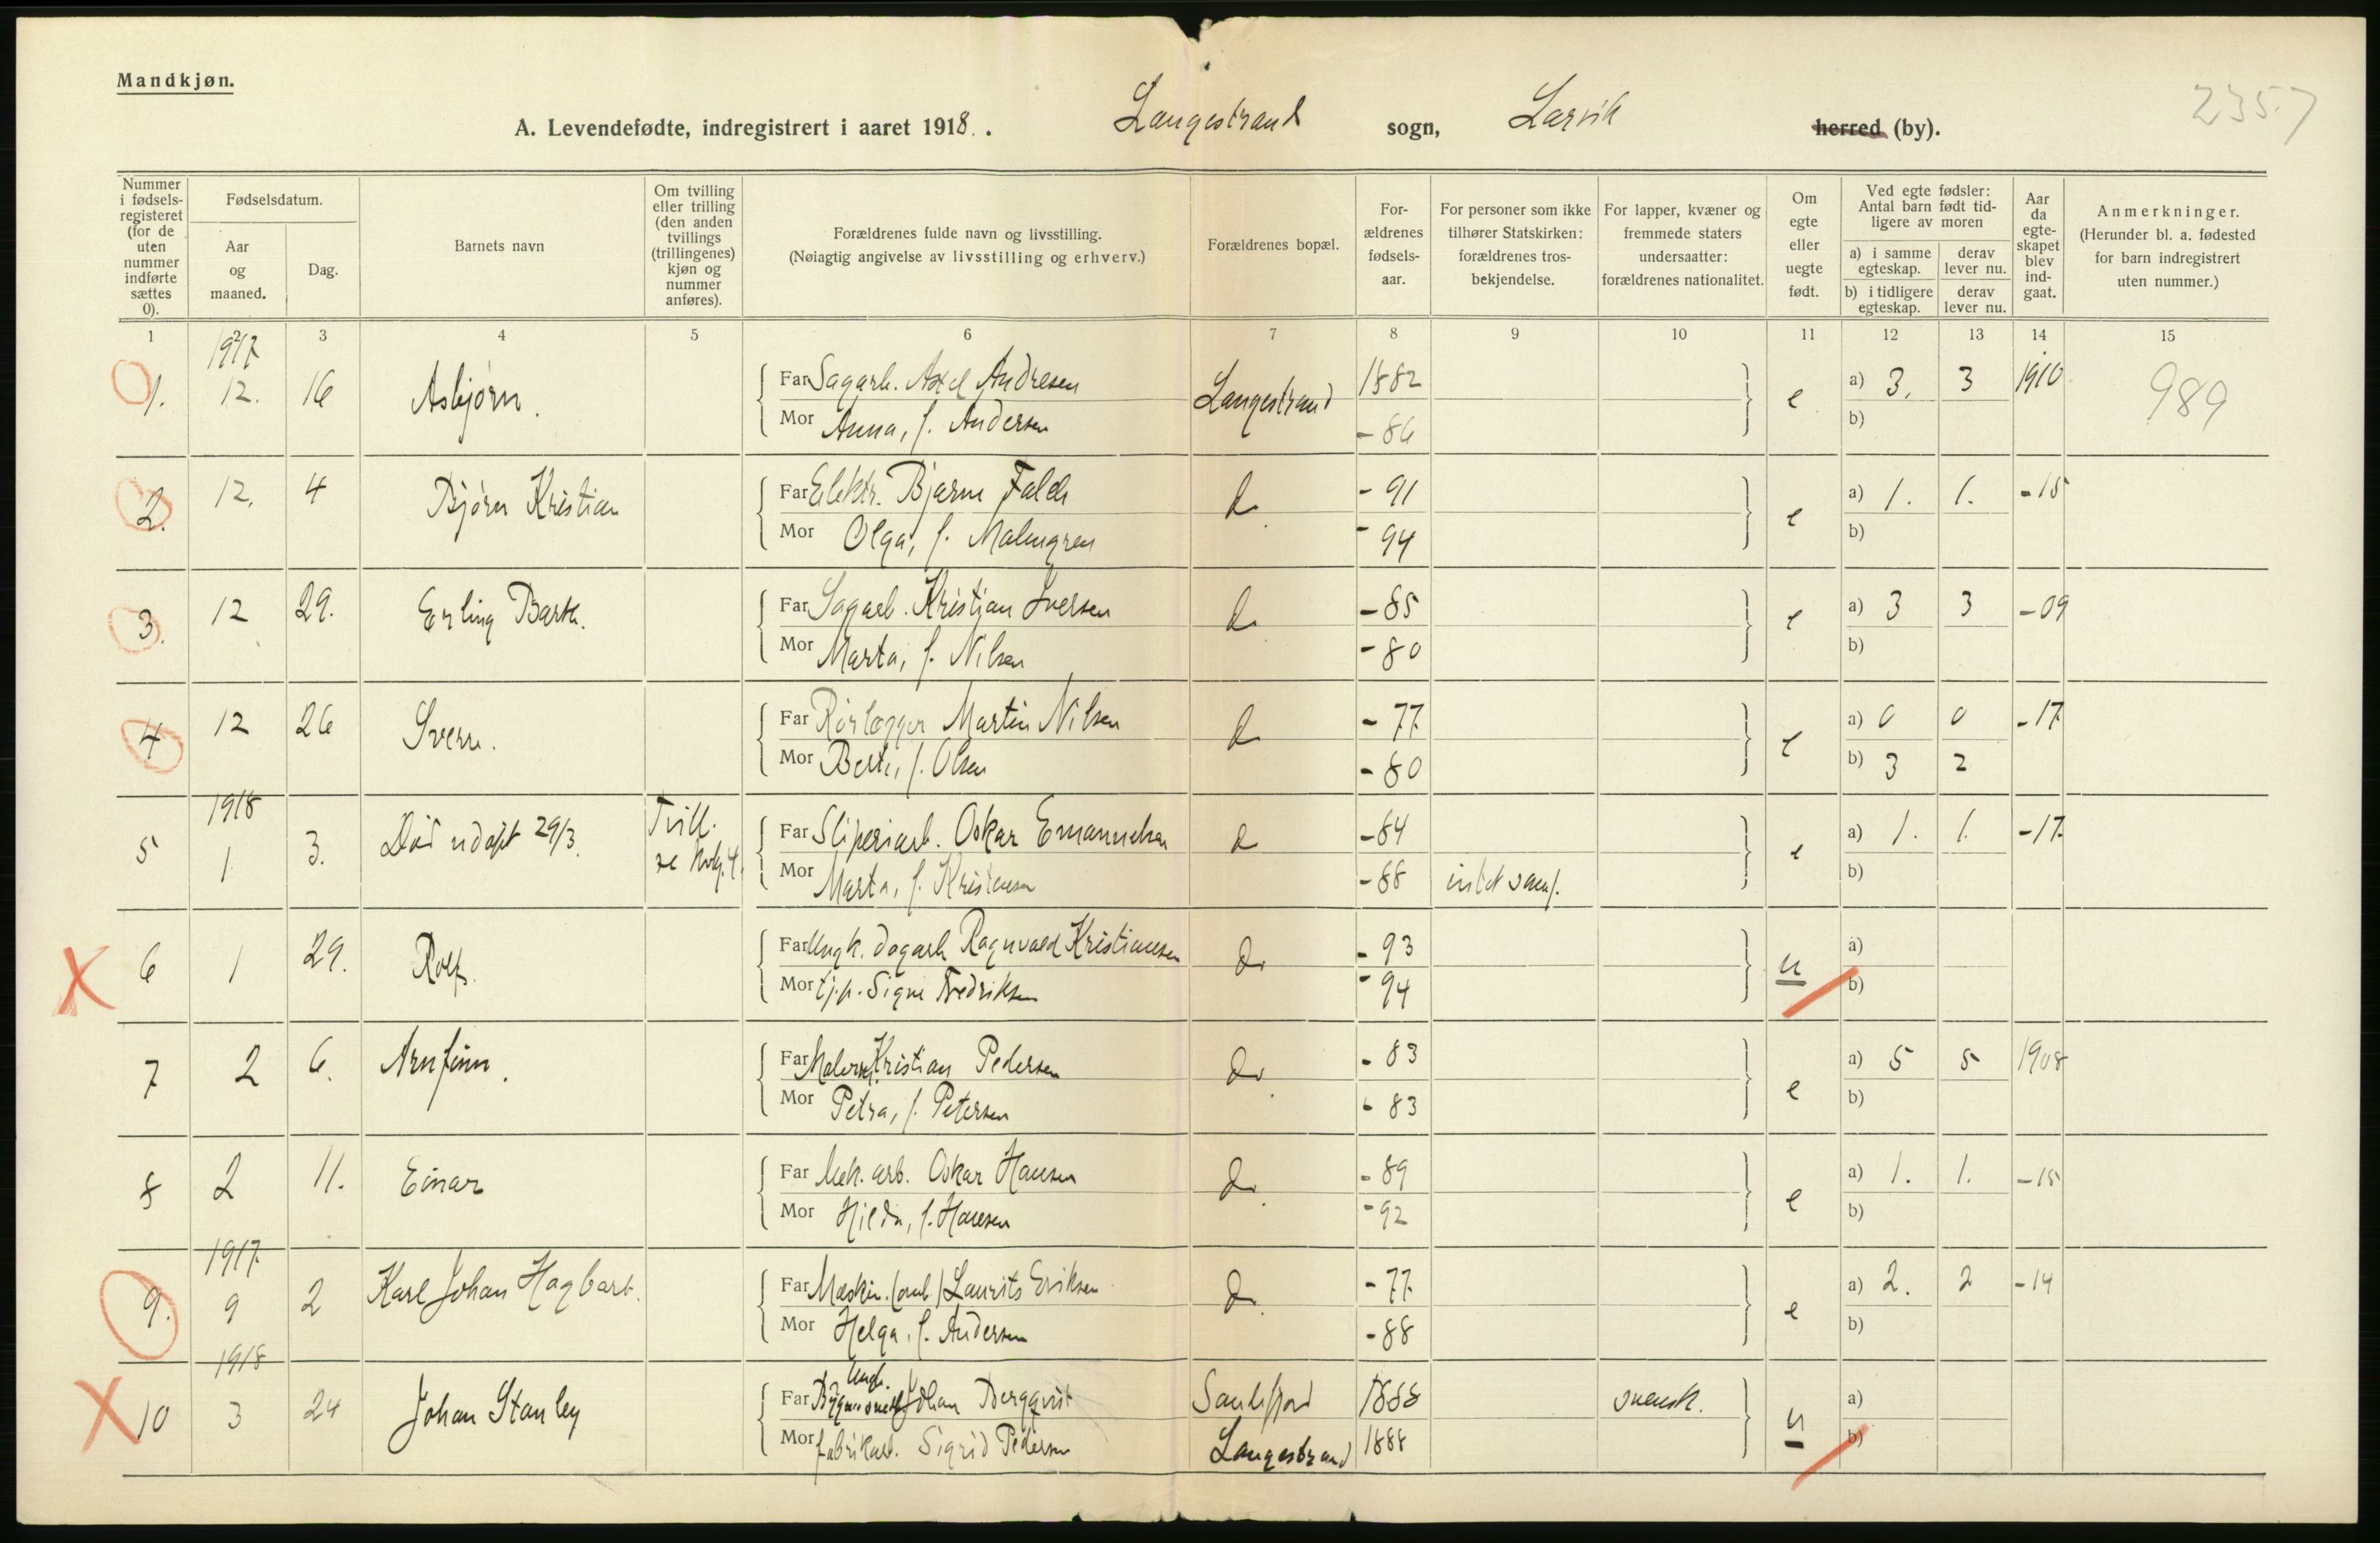 Mandkjøn.
A. Levendefødte, indregistrert i aaret 1918. Langestrand sogn, Larvik herred (by).
2357
Nummer i fødselsregisteret (for de uten nummer indførte sættes 0).
Fødselsdatum.
Aar og maaned.
Dag.
Barnets navn
Om tvilling eller trilling (den anden tvillings (trillingenes) kjøn og nummer anføres).
Forældrenes fulde navn og livsstilling.
(Nøiagtig angivelse av livsstilling og erhverv.)
Forældrenes bopæl.
Forældrenes fødselsaar.
For personer som ikke tilhører Statskirken: forældrenes trosbekjendelse.
For lapper, kvæner og fremmede staters undersaatter: forældrenes nationalitet.
Om egte eller uegte født.
Ved egte fødsler: Antal barn født tidligere av moren
a) i samme egteskap.
derav lever nu.
b) i tidligere egteskap.
derav lever nu.
Aar da egteskapet blev indgaat.
Anmerkninger.
(Herunder bl. a. fødested for barn indregistrert uten nummer.)
1 2 3 4 5 6 7 8 9 10 11 12 13 14 15
1917
1. 12. 16 Asbjørn. Far Sagarb. Axel Andresen Langestrand 1882 e a) 3. 3 1910 989
Mor Anna, f. Andersen - 86 b)
2. 12. 4 Bjørn Kristian Far Elektr. Bjarne Falch do - 91 e a) 1. 1. - 15
Mor Olga, f. Malmgren - 94 b)
3. 12 29. Erling Barth. Far Sagarb. Kristian Iversen do - 85 e a) 3 3 - 09
Mor Marta, f. Nilsen - 80 b)
4 12 26 Sverre. Far Rørlægger Martin Nilsen do - 77 e a) 0 0 - 17
Mor Berta, f. Olsen - 80 b) 3 2
1918
5 1 3. Død udøpt 29/3. Tvill. se kvkj. 4. Far Sliperiarb. Oskar Emanuelsen do - 84 e a) 1. 1. - 17
Mor Marta, f. Kristensen - 88 intet samf. b)
X 6 1 29. Rolf. Far Ungk. dagarb. Ragnvald Kristiansen do - 93 u a)
Mor tj.p. Signe Fredriksen - 94 b)
7 2 6. Arnfinn. Far Malersv. Kristian Pedersen do - 83 e a) 5 5 1908
Mor Petra, f. Petersen - 83 b)
8 2 11. Einar Far Mek. arb. Oskar Hansen do - 89 e a) 1. 1. - 15
Mor Hilda, f. Hansen - 92 b)
1917
9. 9 2 Karl Johan Hagbart. Far Maskin. (omb.) Laurits Eriksen do - 77 e a) 2. 2 - 14
Mor Helga, f. Andersen - 88 b)
1918
X 10 3 24 Johan Stanley Far Ungk. Johan Bergqvist Sandefjord 1888 svensk. u a)
Mor fabrikarb. Sigrid Pedersen Langestrand 1888 b)